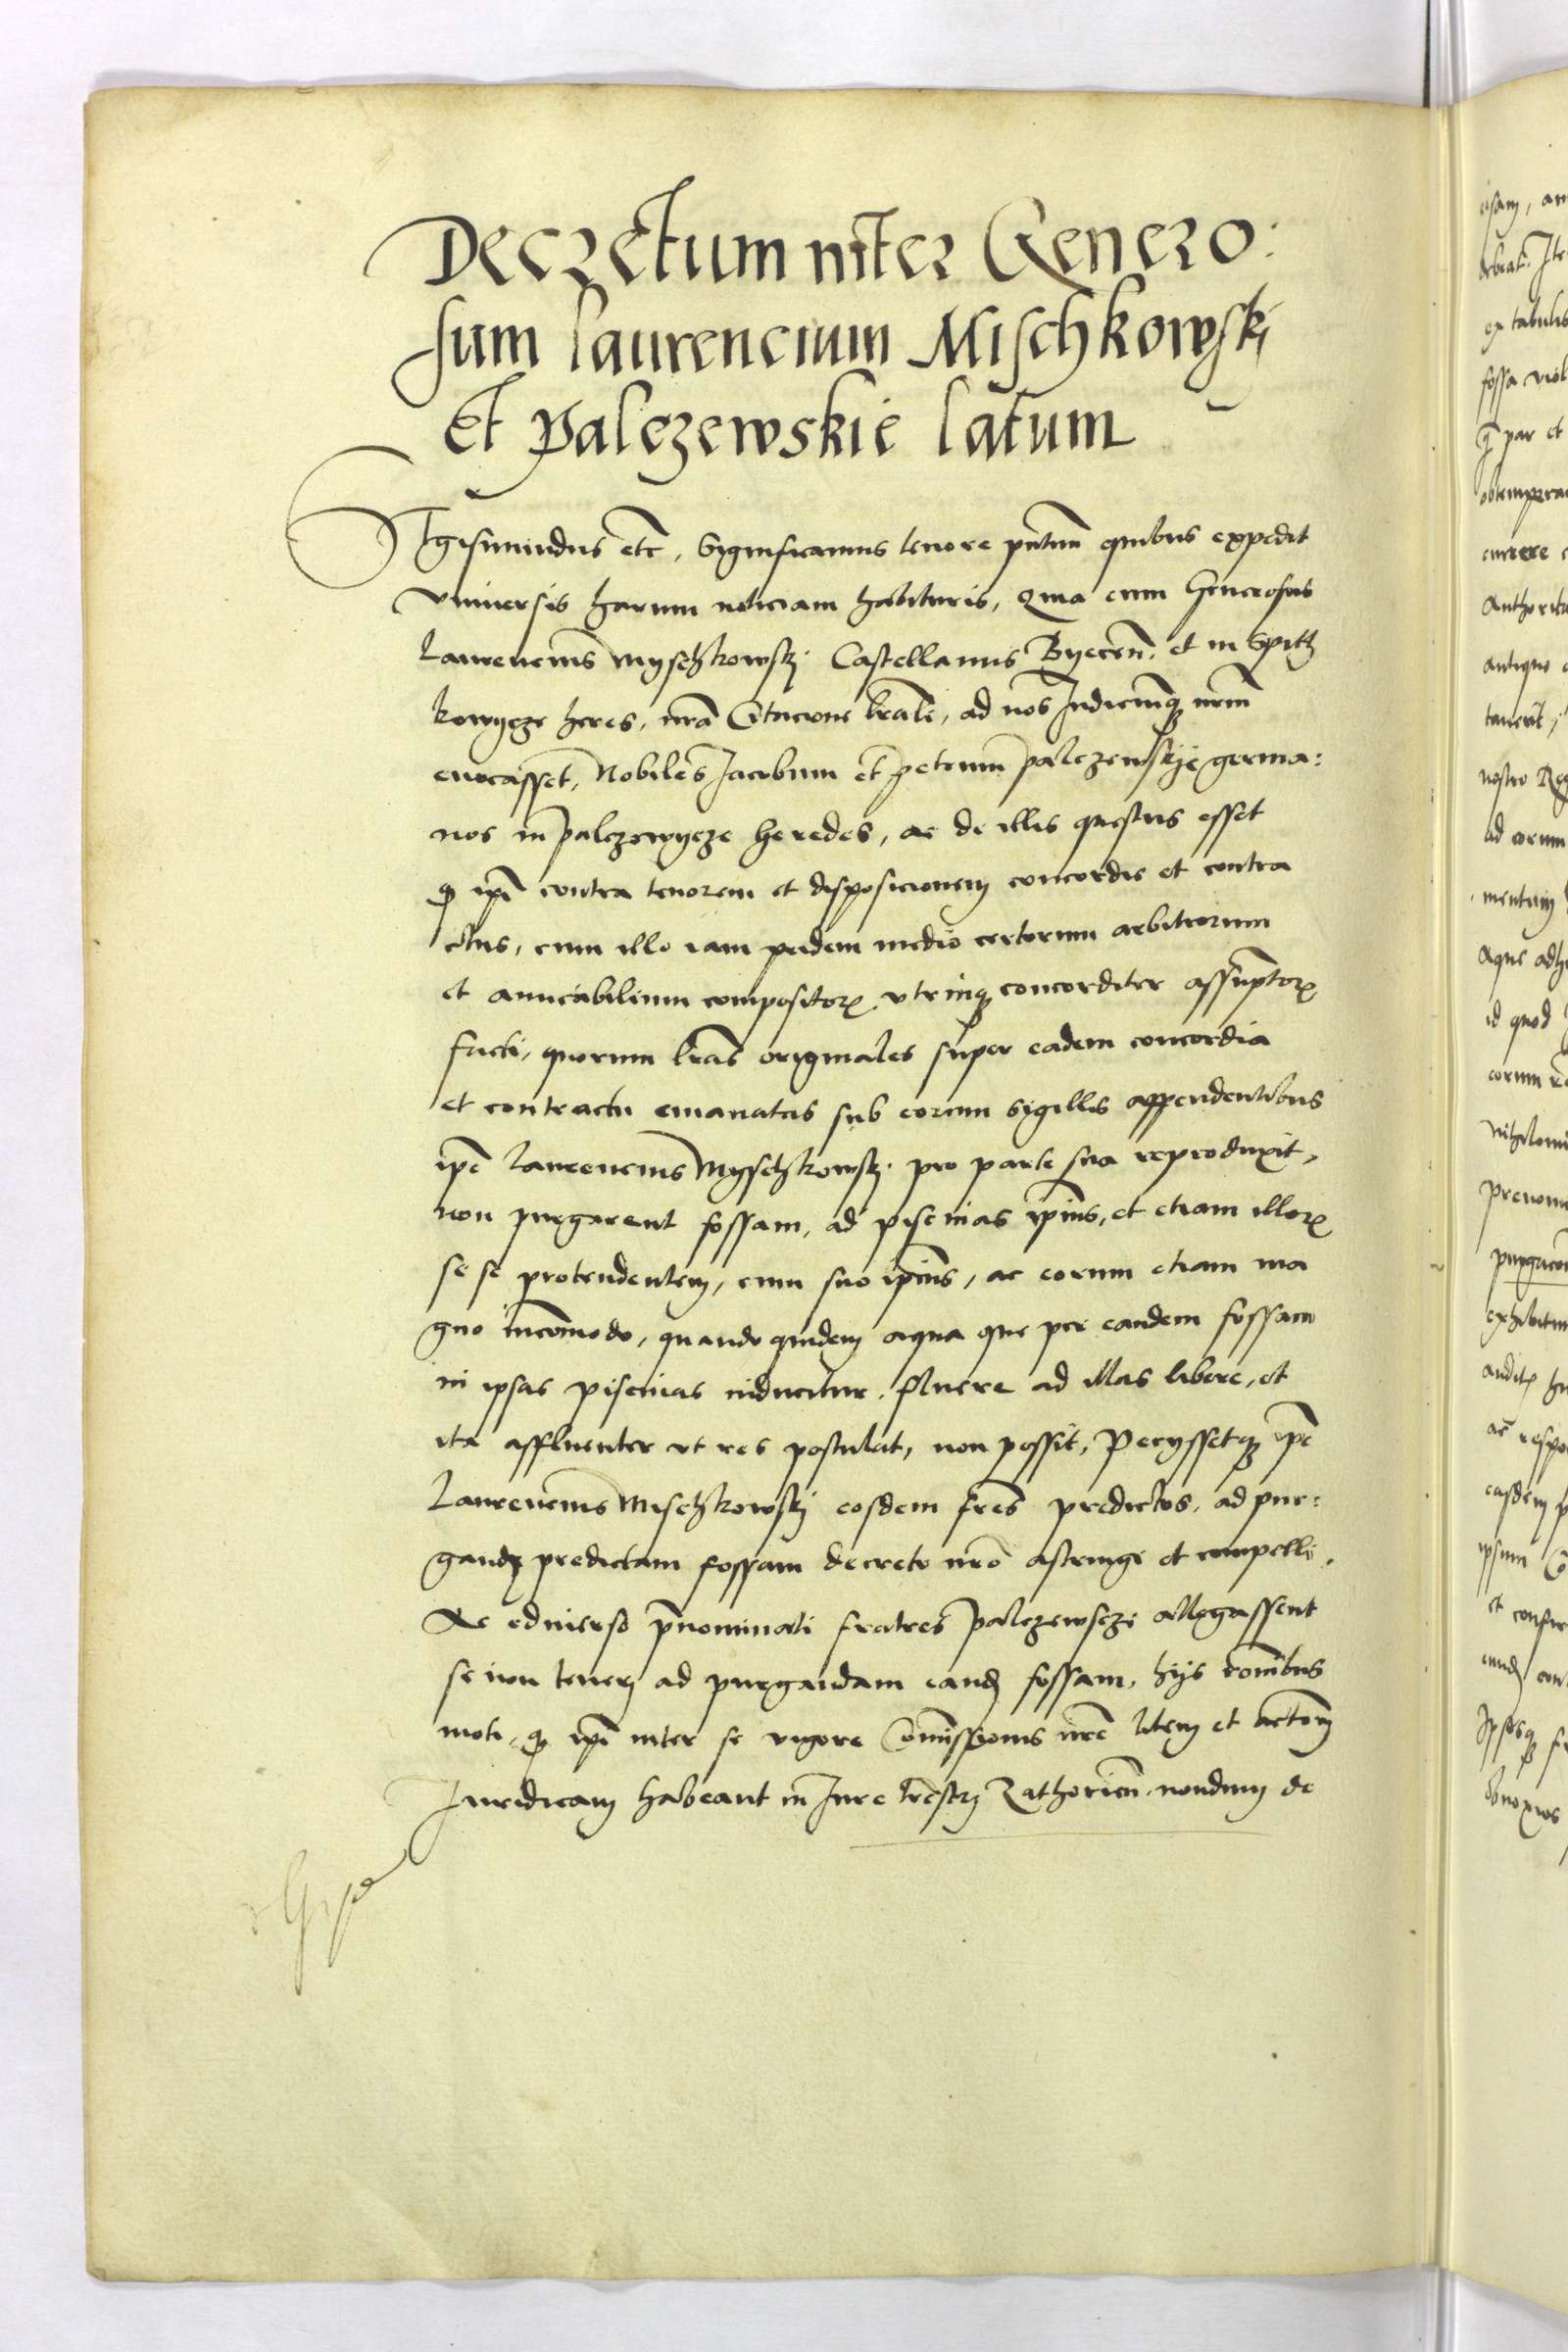 Decretum inter Genero:
sum Laurencium Mischkowskj
Et Palczewskie latum
Sigismundus etc, Significamus tenore pntium quibus expedit
vniversis harum noticiam habituris, Quia cum Generosus
Laurencius Myschkowskj Castellanus Byecen. et in Spith
kowycze heres, nra Citacione lrali, ad nos Judiciumq nrum
evocasset, Nobiles Jacobum et petrum palczewskije germa:
nos in palczewycze heredes, ac de illis questus esset
q ipi contra tenorem et disposicionem concordie et contra
ctus, cum illo iam pridem medio certorum arbitrorum
et amicabilium compositor vtrinq concorditer assumptor
facti, quorum lras originales super eadem concordia
et contractu emanatas sub eorum sigillis appendentibus
ipe Laurencius Myschkowskj pro parte sua reproduxit,
non purgarent fossam, ad piscinas ipius, et etiam illor
se se protendentem, cum suo ipius, ac eorum etiam ma
gno incomodo, quando quidem aqua que per eandem fossam
in ipsas piscinas inducitur, fluere ad illas libere, et
ita affluenter vt res postulat, non possit, Petyssetq ipe
Laurencius Mischkowskj eosdem fres predictos, ad pur:
gand predictam fossam decreto nro astringi et compelli.
Ac ediuerso prenominati fratres palczewsczi allegassent
se non teneri ad purgandam eand fossam, hijs ronibus
moti, q ipi inter se vigore Comissionis nre litem et actom
Juridicam habeant in Jure trestri Zathorien. nondum de